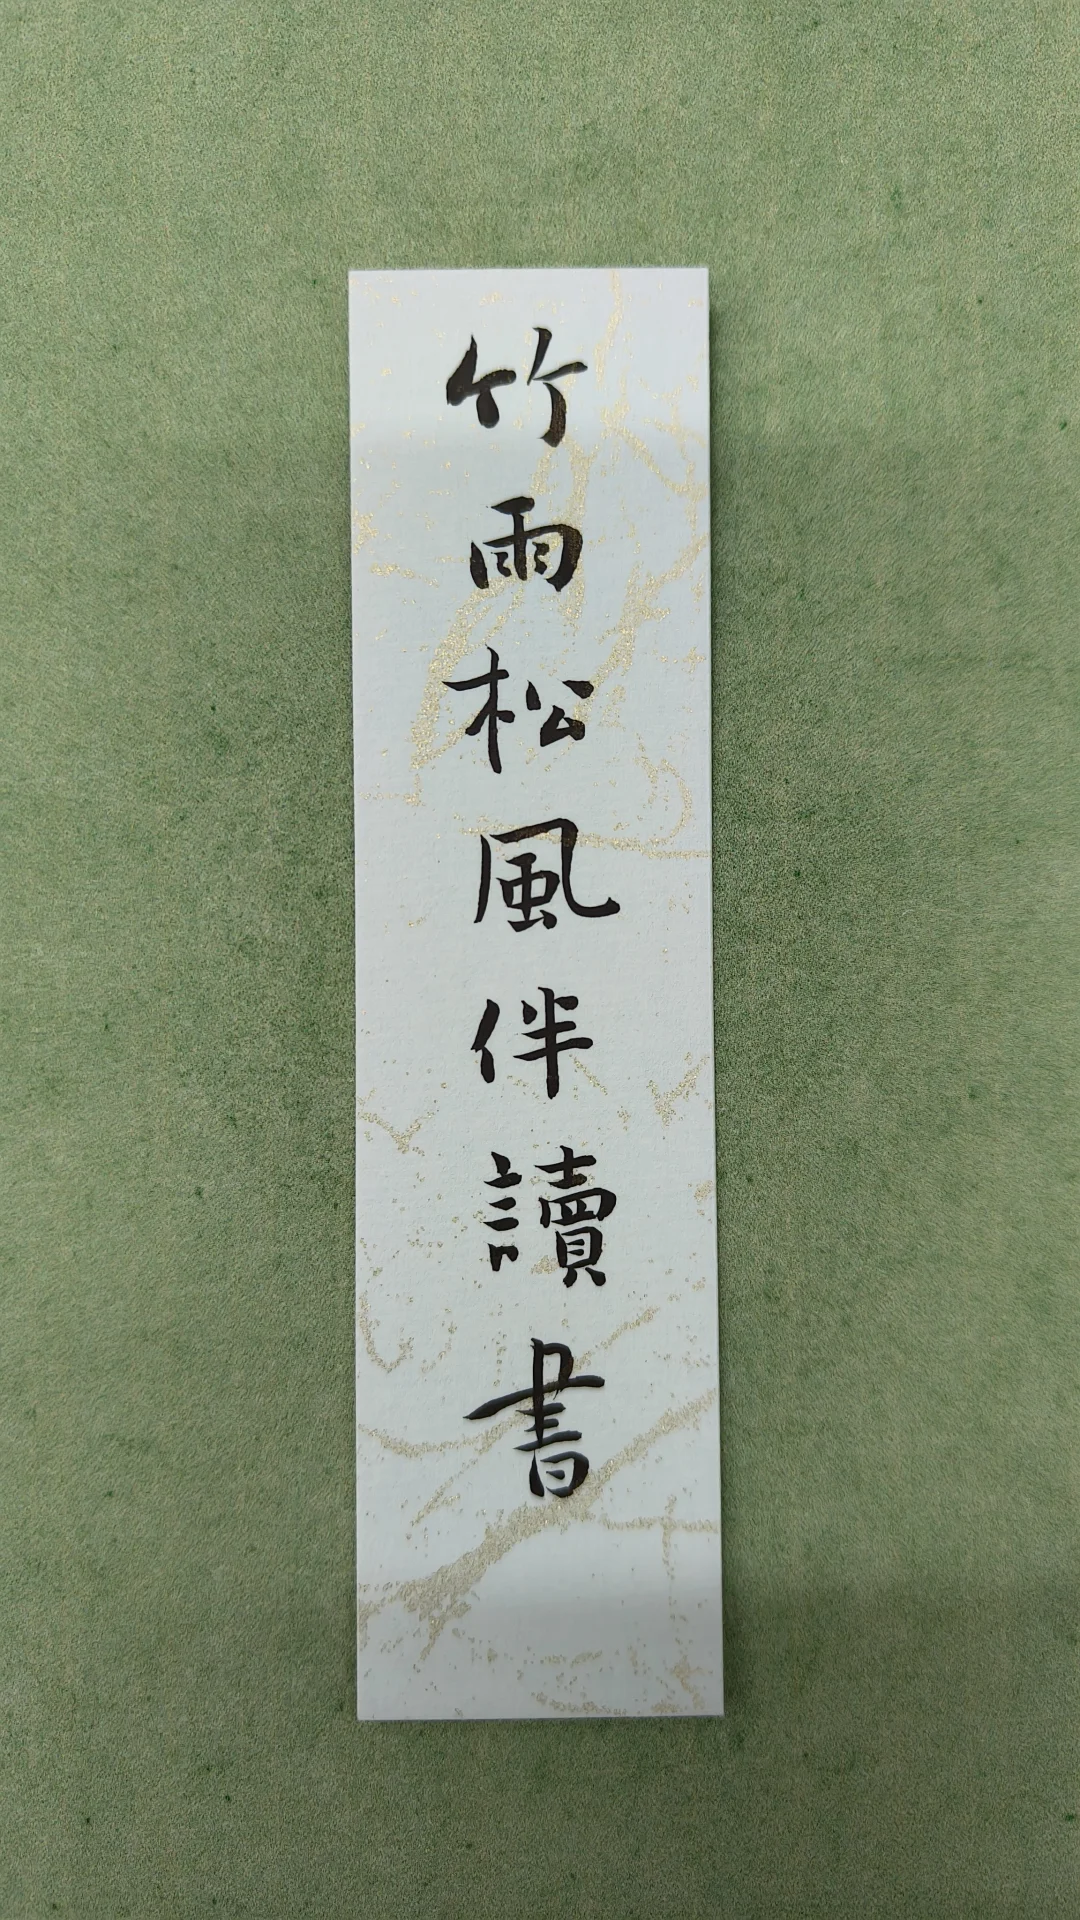 竹雨松風伴讀書